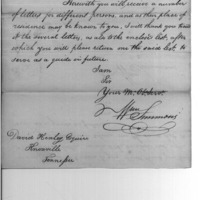 Herewith you will receive a number
of letters for different persons, and as their place of
residence may be known to you, I will thank you
to the several letters, as to the
which you will please return on the same list to
serve as a guide in future.
I am
Sir
Your
Wm Simmons
David Henley Esquire
Knoxville
Tennessee